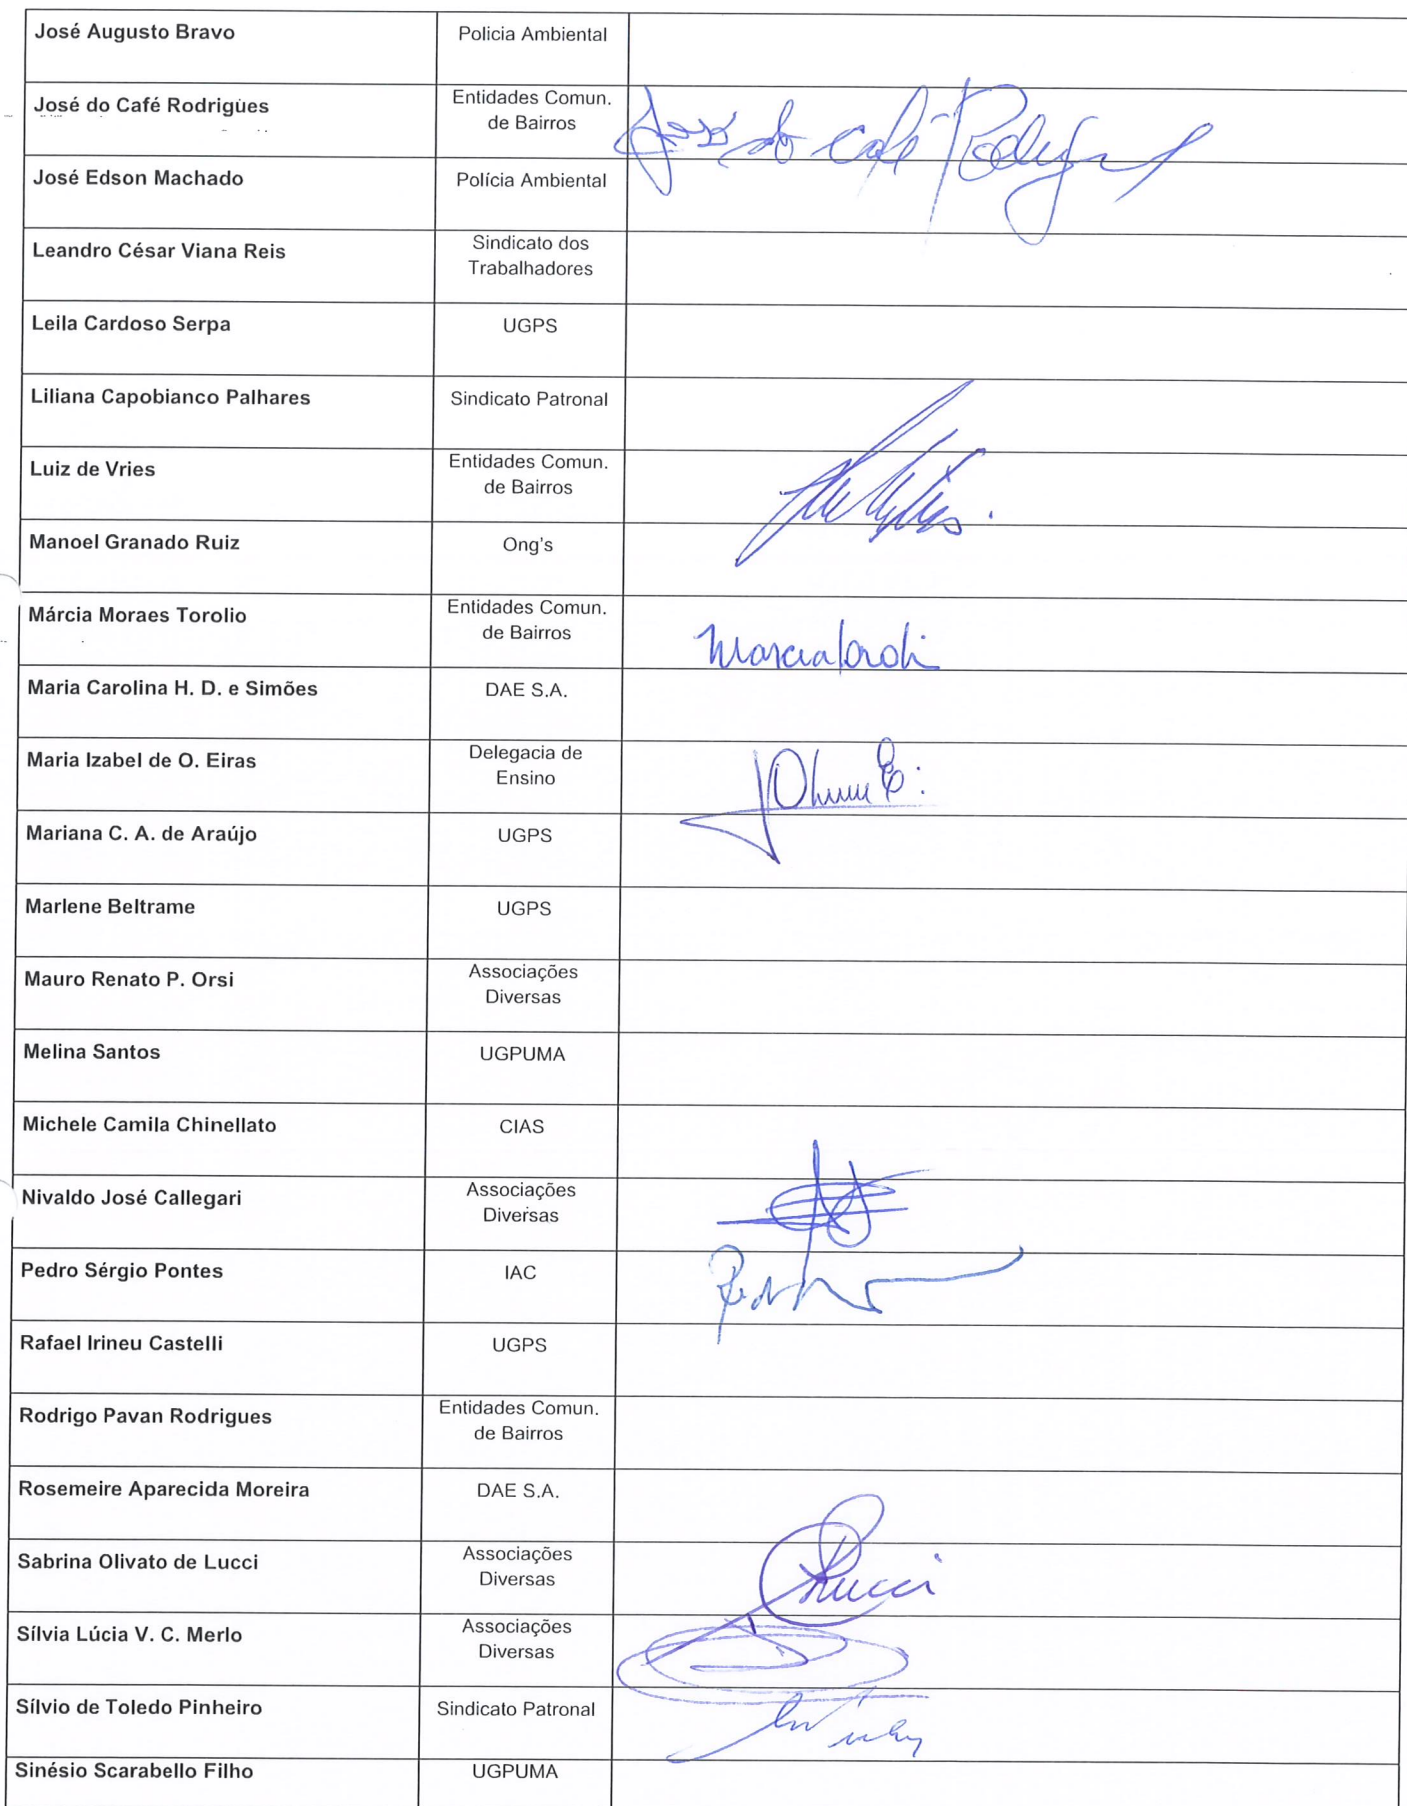 José Augusto Bravo
Policia Ambiental
José do Café Rodrigues
Entidades Comun.
de Bairros
José do Café Rodrigues
José Edson Machado
Polícia Ambiental
Leandro César Viana Reis
Sindicato dos
Trabalhadores
Leila Cardoso Serpa
UGPS
Liliana Capobianco Palhares
Sindicato Patronal
Luiz de Vries
Entidades Comun.
de Bairros
Manoel Granado Ruiz
Ong's
Márcia Moraes Torolio
Entidades Comun.
de Bairros
Marcia
Maria Carolina H. D. e Simões
DAE S.A.
Maria Izabel de O. Eiras
Delegacia de
Ensino
Mariana C. A. de Araújo
UGPS
Marlene Beltrame
UGPS
Mauro Renato P. Orsi
Associações
Diversas
Melina Santos
UGPUMA
Michele Camila Chinellato
CIAS
Nivaldo José Callegari
Associações
Diversas
Pedro Sérgio Pontes
IAC
Rafael Irineu Castelli
UGPS
Rodrigo Pavan Rodrigues
Entidades Comun.
de Bairros
Rosemeire Aparecida Moreira
DAE S.A.
Sabrina Olivato de Lucci
Associações
Diversas
Lucci
Sílvia Lúcia V. C. Merlo
Associações
Diversas
Sílvio de Toledo Pinheiro
Sindicato Patronal
Sinésio Scarabello Filho
UGPUMA